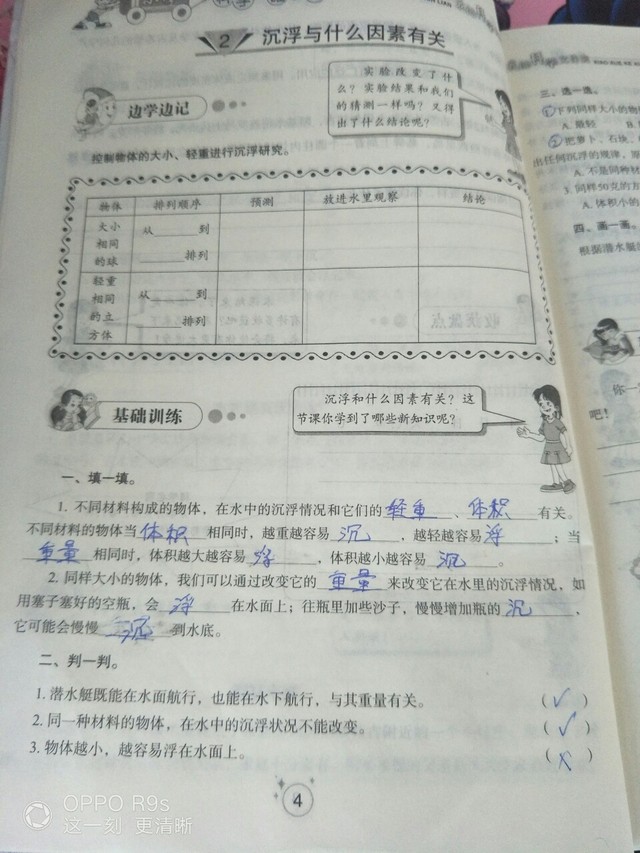 2 沉浮与什么因素有关
实验改变了什
么？实验结果和我们
的猜测一样吗？又得
出了什么结论呢？
边学边记
控制物体的大小、轻重进行沉浮研究。
物体 排列顺序 预测 放进水里观察 结论
大小相同的球 从______到______排列
轻重相同的立方体 从______到______排列
沉浮和什么因素有关？这
节课你学到了哪些新知识呢？
基础训练
一、填一填。
1. 不同材料构成的物体，在水中的沉浮情况和它们的 轻重 、 体积 有关。
不同材料的物体当 体积 相同时，越重越容易 沉 ，越轻越容易 浮 ；当
重量 相同时，体积越大越容易 浮 ，体积越小越容易 沉 。
2. 同样大小的物体，我们可以通过改变它的 重量 来改变它在水里的沉浮情况，如
用塞子塞好的空瓶，会 浮 在水面上；往瓶里加些沙子，慢慢增加瓶的 沉 ，
它可能会慢慢 沉 到水底。
二、判一判。
1. 潜水艇既能在水面航行，也能在水下航行，与其重量有关。 （✓）
2. 同一种材料的物体，在水中的沉浮状况不能改变。 （✓）
3. 物体越小，越容易浮在水面上。 （×）
4
三、选一选。
1 下列同样大小的物
A. 最轻
2 把萝卜、石块、
出任何沉浮的规律，
A. 不是同种材
3. 同样50克的
A. 体积小的
四、画一画。
根据潜水艇
你一
吧！
OPPO R9s
这一刻 更清晰